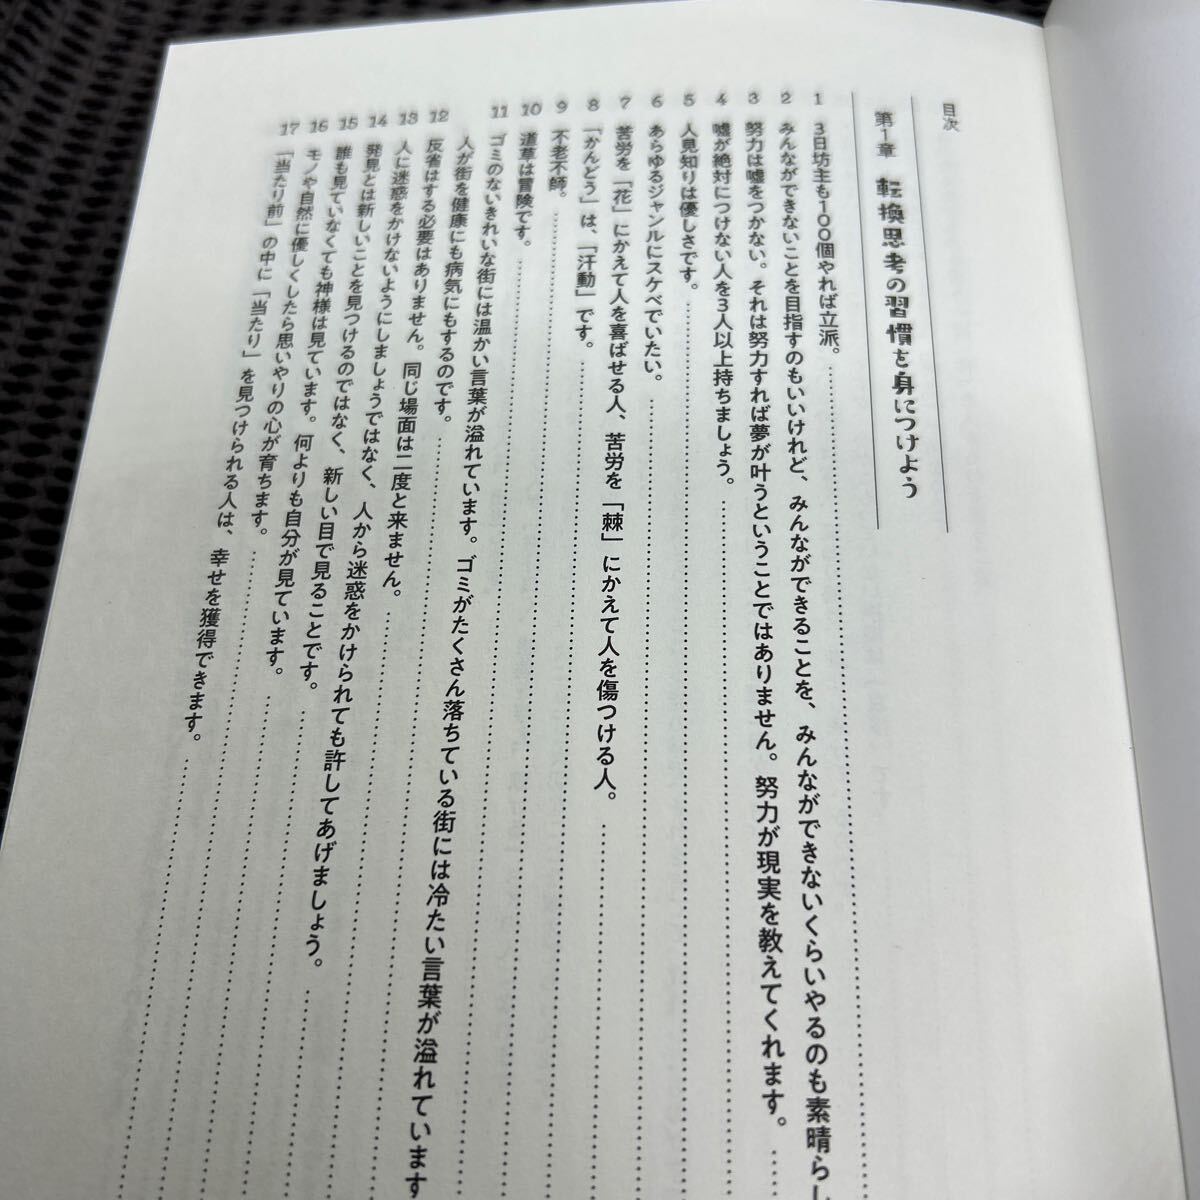 目次
第1章 転換思考の習慣を身につけよう
1 3日坊主も100個やれば立派。
2 みんなができないことを目指すのもいいけれど、みんなができることを、みんなができないくらいやるのも素晴らし
3 努力は嘘をつかない。それは努力すれば夢が叶うということではありません。努力が現実を教えてくれます。
4 嘘が絶対につけない人を3人以上持ちましょう。
5 人見知りは優しさです。
6 あらゆるジャンルにスケベでいたい。
7 苦労を「花」にかえて人を喜ばせる人、苦労を「棘」にかえて人を傷つける人。
8 「かんどう」は、「汗動」です。
9 不老不師。
10 道草は冒険です。
11 ゴミのないきれいな街には温かい言葉が溢れています。ゴミがたくさん落ちている街には冷たい言葉が溢れています
人が街を健康にも病気にもするのです。
12 反省はする必要はありません。同じ場面は二度と来ません。
13 人に迷惑をかけないようにしましょうではなく、人から迷惑をかけられても許してあげましょう。
14 発見とは新しいことを見つけるのではなく、新しい目で見ることです。
15 誰も見ていなくても神様は見ています。何よりも自分が見ています。
16 モノや自然に優しくしたら思いやりの心が育ちます。
17 「当たり前」の中に「当たり」を見つけられる人は、幸せを獲得できます。